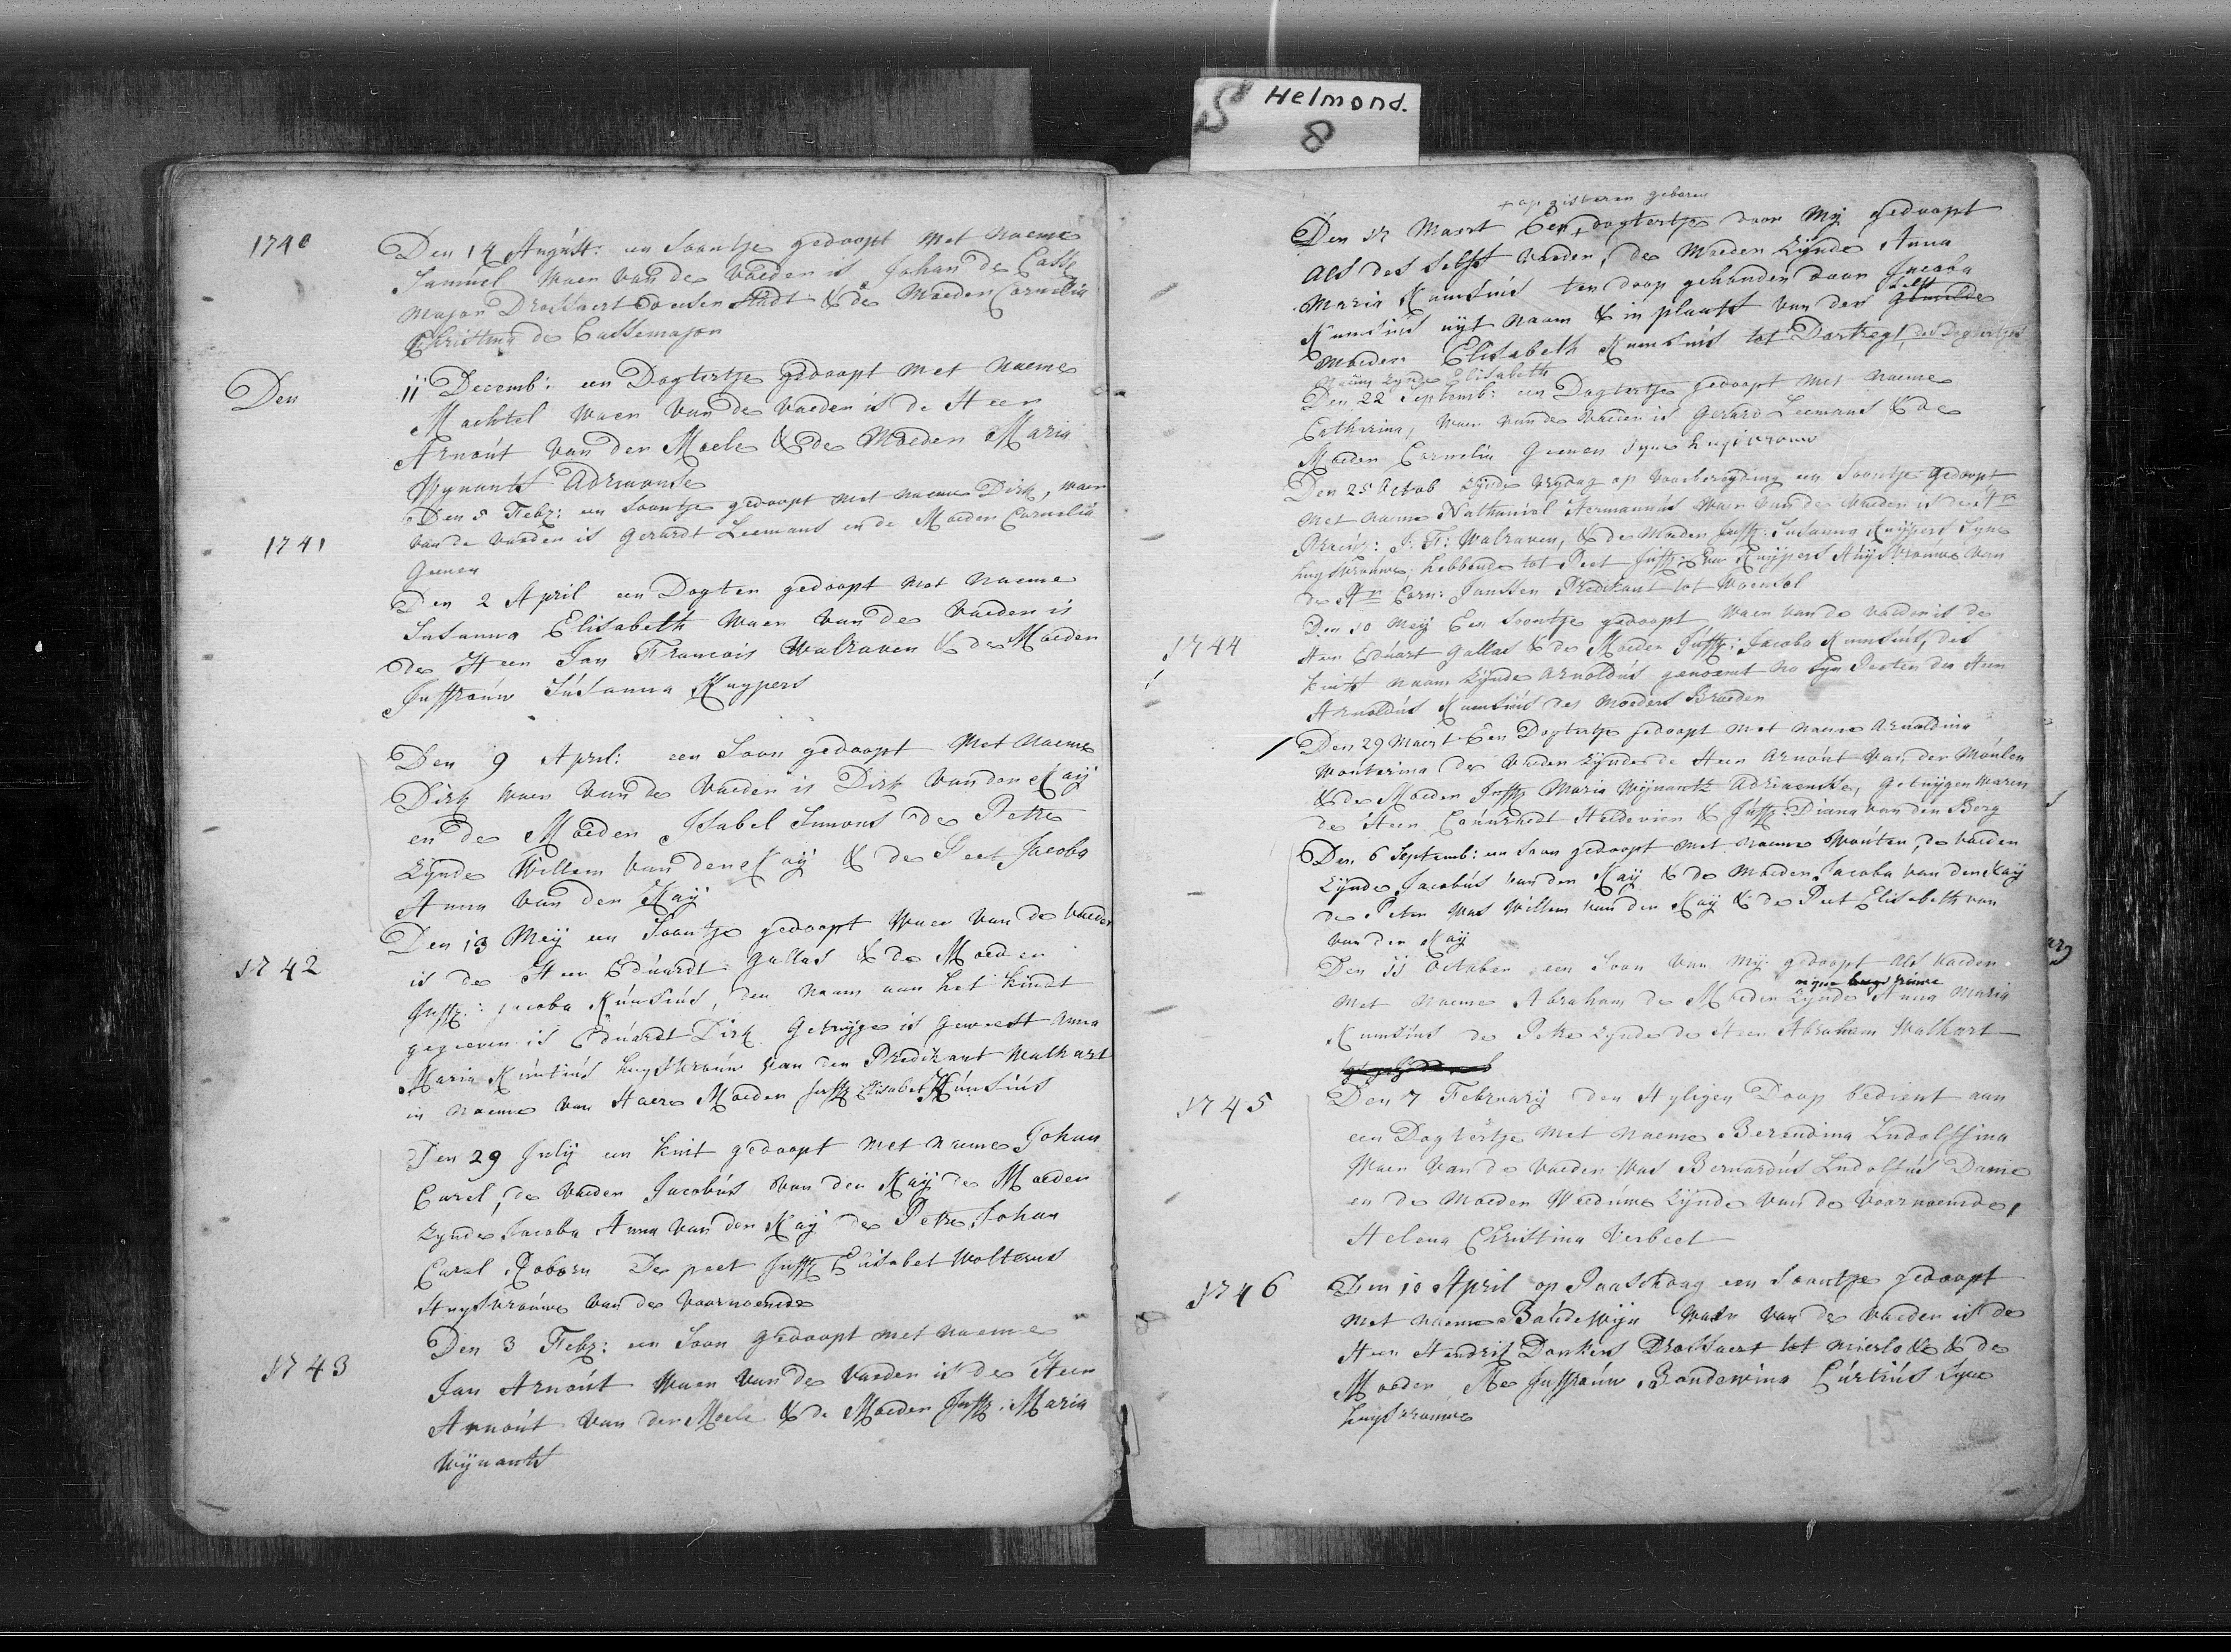 S Helmond.
8
1740
Den 14 August: een Soontje gedoopt met naeme
Samuel waer van de vaeder is Johan de Casse
major Drossaert deeser stadt & de Moeder Cornelia
Christina de Cassemajor
Den 11 Decemb: een Dogtertje gedoopt met naeme
Machtel waer van de vaeder is de Heer
Arnout van der Moele & de Moeder Maria
Wynants Adriaanse
1741
Den 5 Febr: een Soontje gedoopt met naeme Dirk, waer
van de vaeder is Gerardt Leemans en de Moeder Cornelia
Geenen
Den 2 April een Dogter gedoopt met naeme
Susanna Elisabeth waer van de vaeder is
de Heer Jan Francois Walraven & de Moeder
Juffrouw Susanna Kuypers
Den 9 April: een Soon gedoopt met naeme
Dirk waer van de vaeder is Dirk van den Kaij
en de Moeder Isabel Simons de Petre
zynde Willem van den Kaij & de Peet Jacoba
Anna van den Kaij
1742
Den 13 Meij een Soontje gedoopt waer van de vaeder
is de Heer Eduardt Gallas & de Moeder
Juffr: Jacoba Kunsius, den naam aan het kindt
gegeeven is Eduardt Dirk. Getuyge is geweest Anna
Maria Kunsius huysvrouw van den Predikant Walkart
in naeme van Haere Moeder Juffr Elisabet Kunsius
Den 29 July een kint gedoopt met naeme Johan
Carel, de vaeder Jacobus van den Kaij de Moeder
zynde Jacoba Anna van den Kaij de Petre Johan
Carel Coborn De peet Juffr Elisabet Wolterus
Huysvrouwe van de voornoemde
1743
Den 3 Febr: een Soon gedoopt met naeme
Jan Arnout waer van de vaeder is de Heer
Arnout van der Moele & de Moeder Juffr: Maria
Wijnants
+ op gisteren geboren
Den 17 Maart Een + dogtertje door Mij gedoopt
als des selfs vaeder, de Moeder zynde Anna
Maria Kunsius ten doop gehouden door Jacoba
Kunsius uijt naam & in plaats van der selfs gemelde
moeder Elisabeth Kunsius tot Dortregt, des Dogtertjes
naam zynde Elisabeth
Den 22 Septemb: een Dogtertje gedoopt met naeme
Catharina, waer van de vaeder is Gerard Leemans & de
Moeder Cornelia Geenen syne huysvrouw
Den 25 Octob zynde vrydag op voorbereyding een Soontje gedoopt
met naeme Nathaniel Hermannus waer van de vaeder is de Hr
J: F: Walraven, & de Moeder Juffr: Susanna Kuijpers syne
huysvrouwe, hebbende tot Peet Juffr: Eva Kuijpers Huysvrouwe van
de Hr Corn: Janssen Predikant tot Woensel
1744
Den 10 Meij Een Soontje gedoopt waer van de vaeder is de
Heer Eduart Gallas & de Moeder Juffr: Jacoba Kunsius, des
kints naam zynde Arnoldus genoemt na syn Peeter den Heer
Arnoldus Kunsius des moeders Broeder
Den 29 Maert Een Dogtertje gedoopt met naeme Arnoldina
Wouterina de vaeder zynde de Heer Arnout van der Moulen
& de Moeder Juffr Maria Wijnants Adriaenske, getuygen waren
de Heer Haldevier & Juffr: Diana van den Berg
Den 6 Septemb: een Soon gedoopt met naeme Wouter, de vaeder
zynde Jacobus van den Kaij & de Moeder Jacoba van den Kaij
de Peter was Willem van den Kaij & de Peet Elisabeth van
van den Kaij
Den 11 October een Soon van mij gedoopt als vaeder
met naeme Abraham de Moeder zynde mijne huysvrouwe Anna Maria
Kunsius de Petre zynde de Heer Abraham Walkart
1745
Den 7 February den Hyligen Doop bedient aan
een Dogtertje met naeme Berendina Ludolffina
Waer van de vaeder was Bernardus Ludolfus Danie
en de Moeder Weduwe zynde van de voornoemde,
Helena Christina Verbeet
1746
Den 10 April op Paaschdag een Soontje gedoopt
met naeme Boudewijn waer van de vaeder is de
Heer Hendrik Donkers Drossaert tot mierlo & de
Moeder Me Juffrouw Boudewina Curtius syne
huysvrouwe